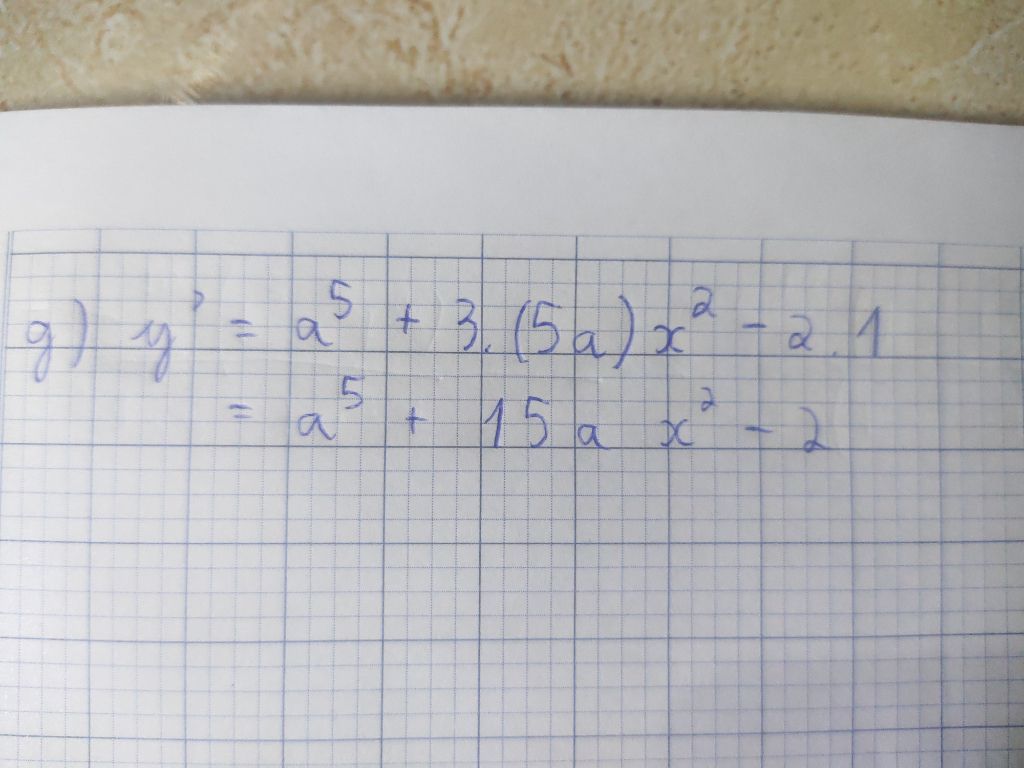 g) y' = a⁵ + 3.(5a)x² - 2.1
= a⁵ + 15a x² - 2